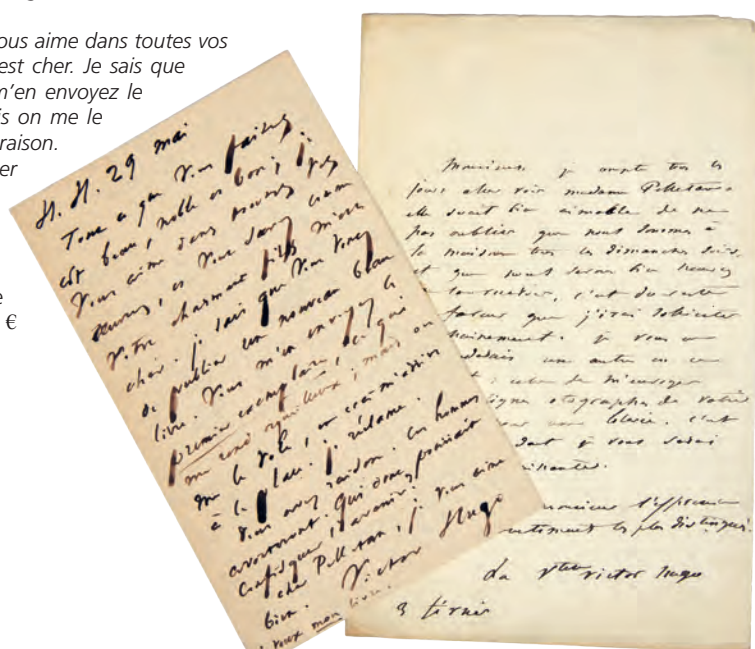 ous aime dans toutes vos
est cher. Je sais que
m'en envoyez le
is on me le
raison.
er
e
€
H. H. 29 mai
Tout ce que vous faites
est beau, noble et bon ; je
vous aime dans toutes vos
œuvres, et vous savez comme
votre charmant fils m'est
cher. je sais que vous venez
de publier un nouveau beau
livre. Vous m'en envoyez le
premier exemplaire, ce qui
me rend orgueilleux ; mais on
me le vole, et
à la place. je réclame.
Vous avez raison. Les hommes
avorteront. Qui donc pourrait
confisquer l'avenir?
cher Pelletan, je vous aime
bien. Victor Hugo
veux mon livre.
Monsieur, je compte tous les
jours aller voir madame Pelletan
elle serait bien aimable de ne
pas oublier que nous sommes à
la maison tous les dimanches soirs
et que nous serons bien heureux
c'est du reste
faveur que j'irai solliciter
je vous
un autre
de m'envoyer
lignes autographes de votre
pour une loterie. c'est
dont je vous serai
monsieur l'expression
les plus distingués.
La Vtesse victor hugo
3 février